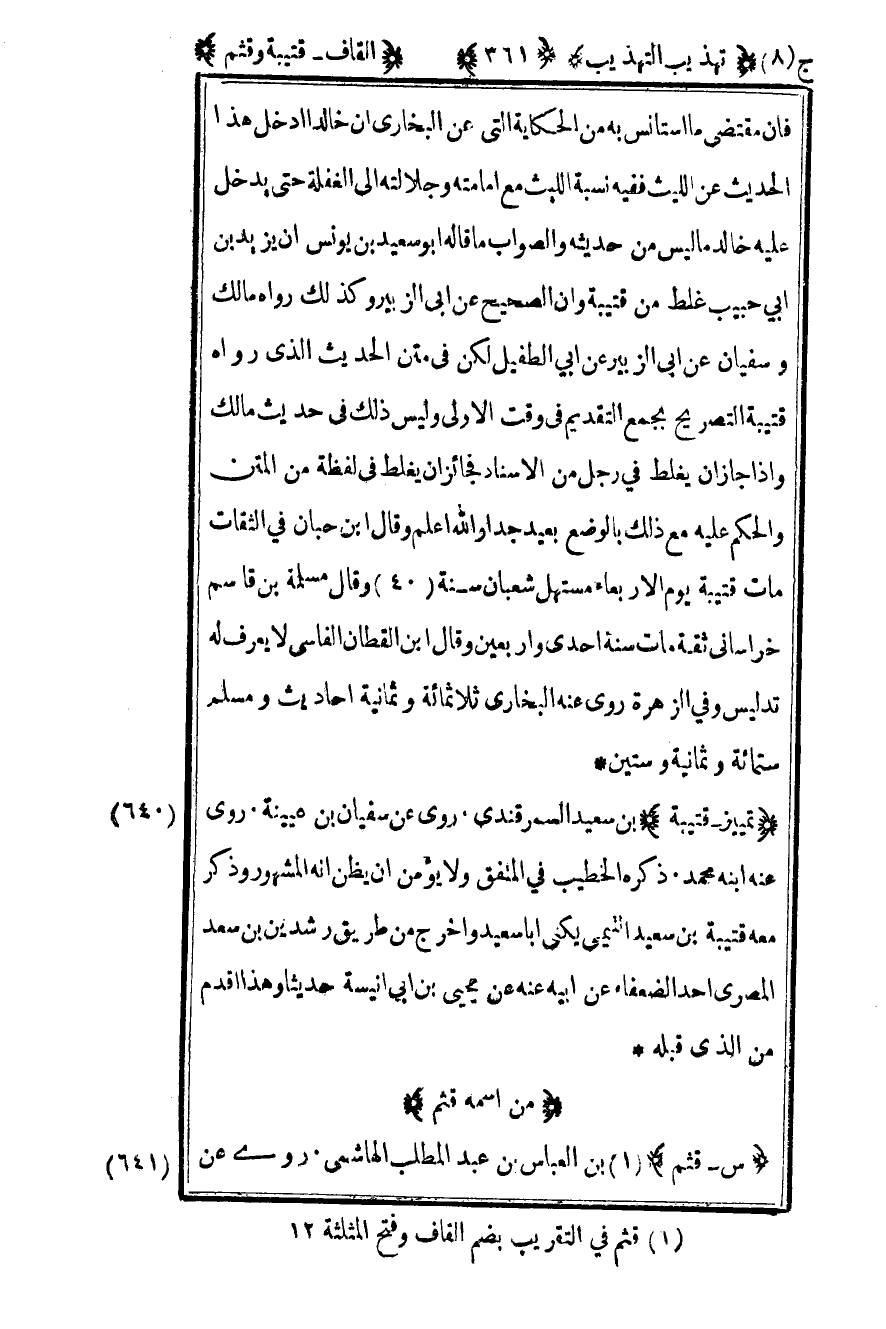 ج (٨) ﴿ تهذيب التهذيب ﴾ ﴿ ٣٦١ ﴾ ﴿ القاف ـ قتيبة وقثم ﴾
فان مقتضى ما استانس به من الحكاية التى عن البخارى ان خالدا ادخل هذا
الحديث عن الليث ففيه نسبة الليث مع امامته وجلالته الى الغفلة حتى يدخل
عليه خالد ما ليس من حديثه والصواب ما قاله ابو سعيد بن يونس ان يزيد بن
ابي حبيب غلط من قتيبة وان الصحيح عن ابى الزبير وكذلك رواه مالك
و سفيان عن ابى الزبير عن ابي الطفيل لكن فى متن الحديث الذى رواه
قتيبة التصريح بجمع التقديم فى وقت الاولى وليس ذلك فى حديث مالك
واذا جاز ان يغلط في رجل من الاسناد فجائز ان يغلط فى لفظة من المتن
والحكم عليه مع ذلك بالوضع بعيد جدا والله اعلم وقال ابن حبان في الثقات
مات قتيبة يوم الاربعاء مستهل شعبان سنة ( ٤٠ ) وقال مسلمة بن قاسم
خراسانى ثقة مات سنة احدى واربعين وقال ابن القطان الفاسى لا يعرف له
تدليس وفي الزهرة روى عنه البخارى ثلاثمائة و ثمانية احاديث و مسلم
ستمائة و ثمانية و ستين *
﴿ تمييز ـ قتيبة ﴾ بن سعيد السمرقندى . روى عن سفيان بن عيينة . روى (٦٤٠)
عنه ابنه محمد . ذكره الخطيب في المتفق ولا يؤمن ان يظن انه المشهور وذكر
معه قتيبة بن سعيد التيمي يكنى ابا سعيد واخرج من طريق رشدين بن سعد
المصرى احد الضعفاء عن ابيه عنه عن يحيى بن ابي انيسة حديثا وهذا اقدم
من الذى قبله *
﴿ من اسمه قثم ﴾
﴿ س ـ قثم ﴾ (١) بن العباس بن عبد المطلب الهاشمى . روے عن (٦٤١)
(١) قثم في التقريب بضم القاف وفتح المثلثة ١٢